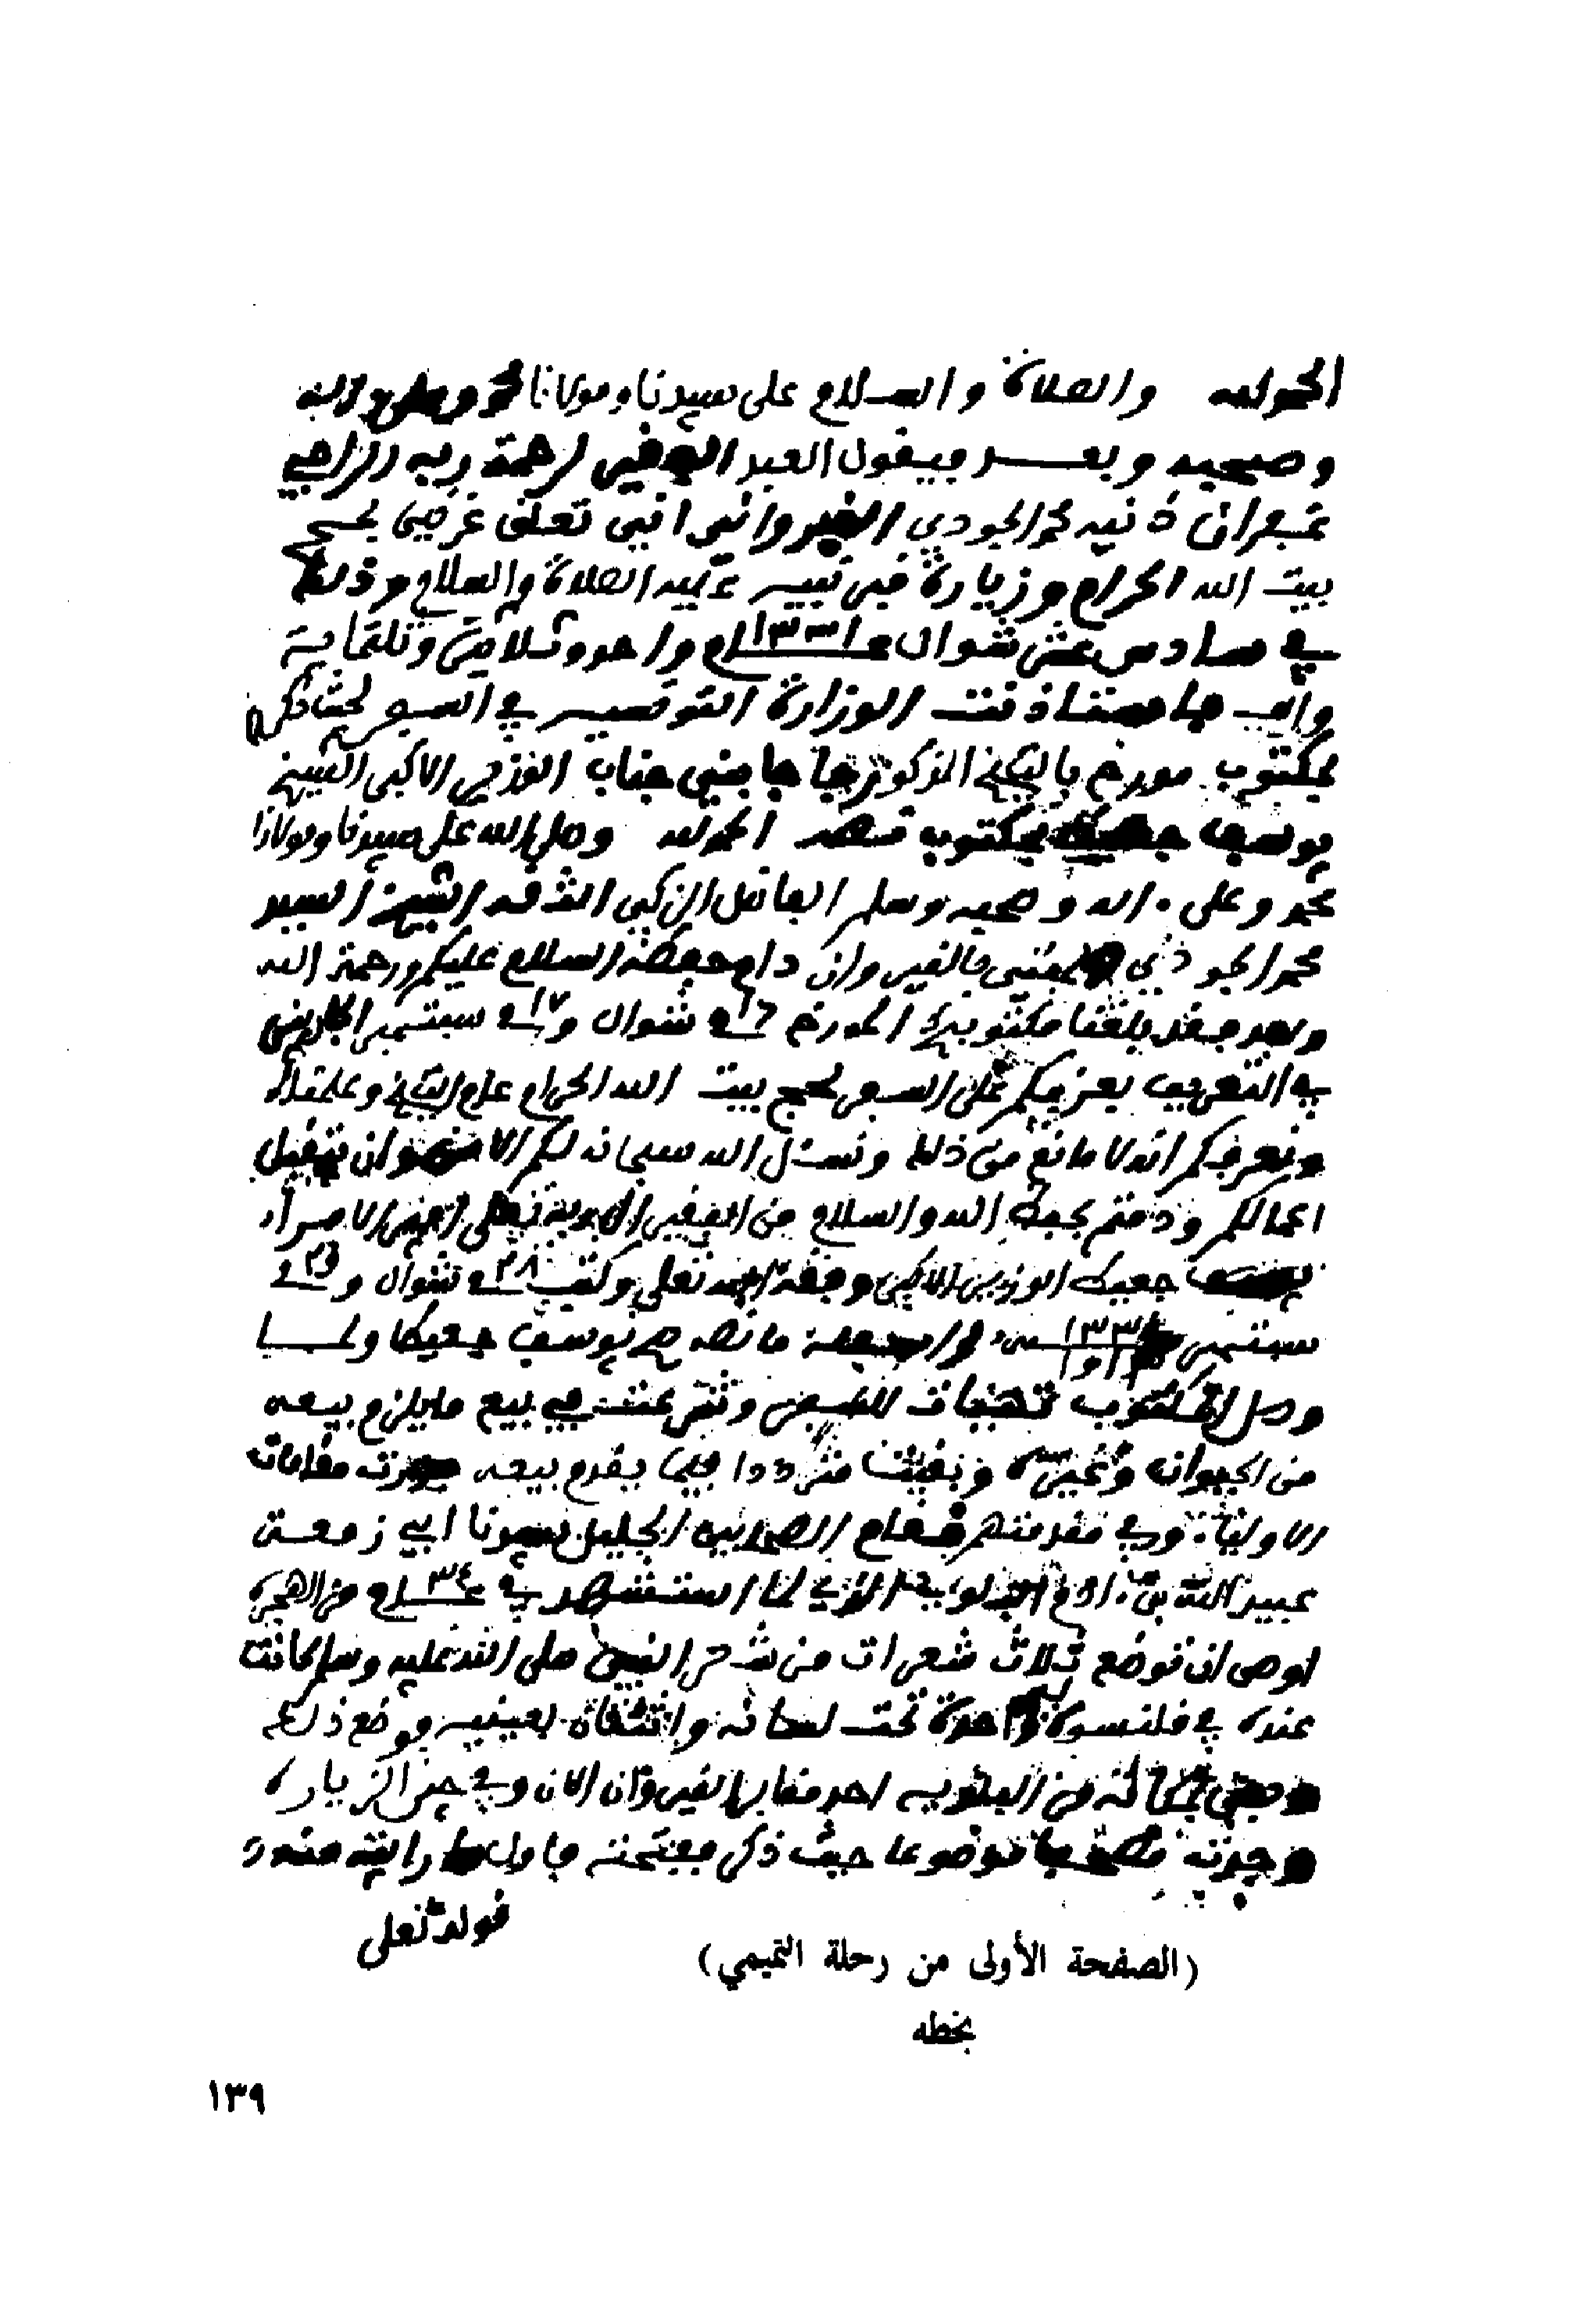 الحمد لله والصلاة والسلام على سيدنا ومولانا محمد وعلى ءاله
وصحبه وبعد فيقول العبد الفقير لرحمة ربه الراجي
غفران ذنبه محمد الجودي القيرواني انني تعلق غرضي بحج
بيت الله الحرام وزيارة قبر نبيه عليه الصلاة والسلام وذلك
في سادس عشر شوال عام ١٣٣١ واحد وثلاثين وثلثماية
والف فاستاذنت الوزارة التونسية في السفر لحث ذكر
بمكتوب مورخ باليوم المذكور فاجابني جناب الوزير الاكبر الشيخ
يوسف جعيط بمكتوب نصه الحمد لله وصلى الله على سيدنا ومولانا
محمد وعلى ءاله وصحبه وسلم الفاضل الزكي الثقة الشيخ السيد
محمد الجودي المفتي بالقيروان دام حفظه السلام عليكم ورحمة الله
وبعد فقد بلغنا مكتوبكم المورخ في ١٦ شوال وفي ١٧ سبتمبر الجاريين
في التعريف بعزمكم على السفر لحج بيت الله الحرام عام التاريخ وعلمناه
ونعرفكم انه لا مانع من ذلك ونسئل الله سبحانه لكم الامن وان يتقبل
اعمالكم ودمتم بحفظ الله والسلام من الفقير الى ربه تعلى امير الامراء
يوسف جعيط الوزير الاكبر وفقه الله تعلى وكتب في ٢٨ شوال وفي ٢٩
سبتمبر سنة ١٣٣١ ١٩١٣ واسفله ما نصه صح يوسف جعيط ولما
وصل المكتوب تهيات للسفر وشرعت في بيع ما يلزم بيعه
من الحيوان وغيره وبقيت مترددا فيما يقدم بيعه فزرت مقامات
الاولياء وفي مقدمتهم مقام الصحابي الجليل سيدنا ابي زمعة
عبيد الله بن ءادم البلوي الذي لما استشهد في عام ٣٤ من الهجرة
اوصى ان توضع ثلاث شعرات من شعر النبي صلى الله عليه وسلم كانت
عنده في قلنسوة واحدة تحت لسانه واثنتان بعينيه فوضع ذلك
ودفن بمكانه من البلوية احد مقابر القيروان الان وفي حين الزيارة
وجدت مصحفا موضوعا حيث ذكر ففتحته فاول ما رايته منه
قوله تعلى
(الصفحة الأولى من رحلة التميمي)
بخطه
١٣٩